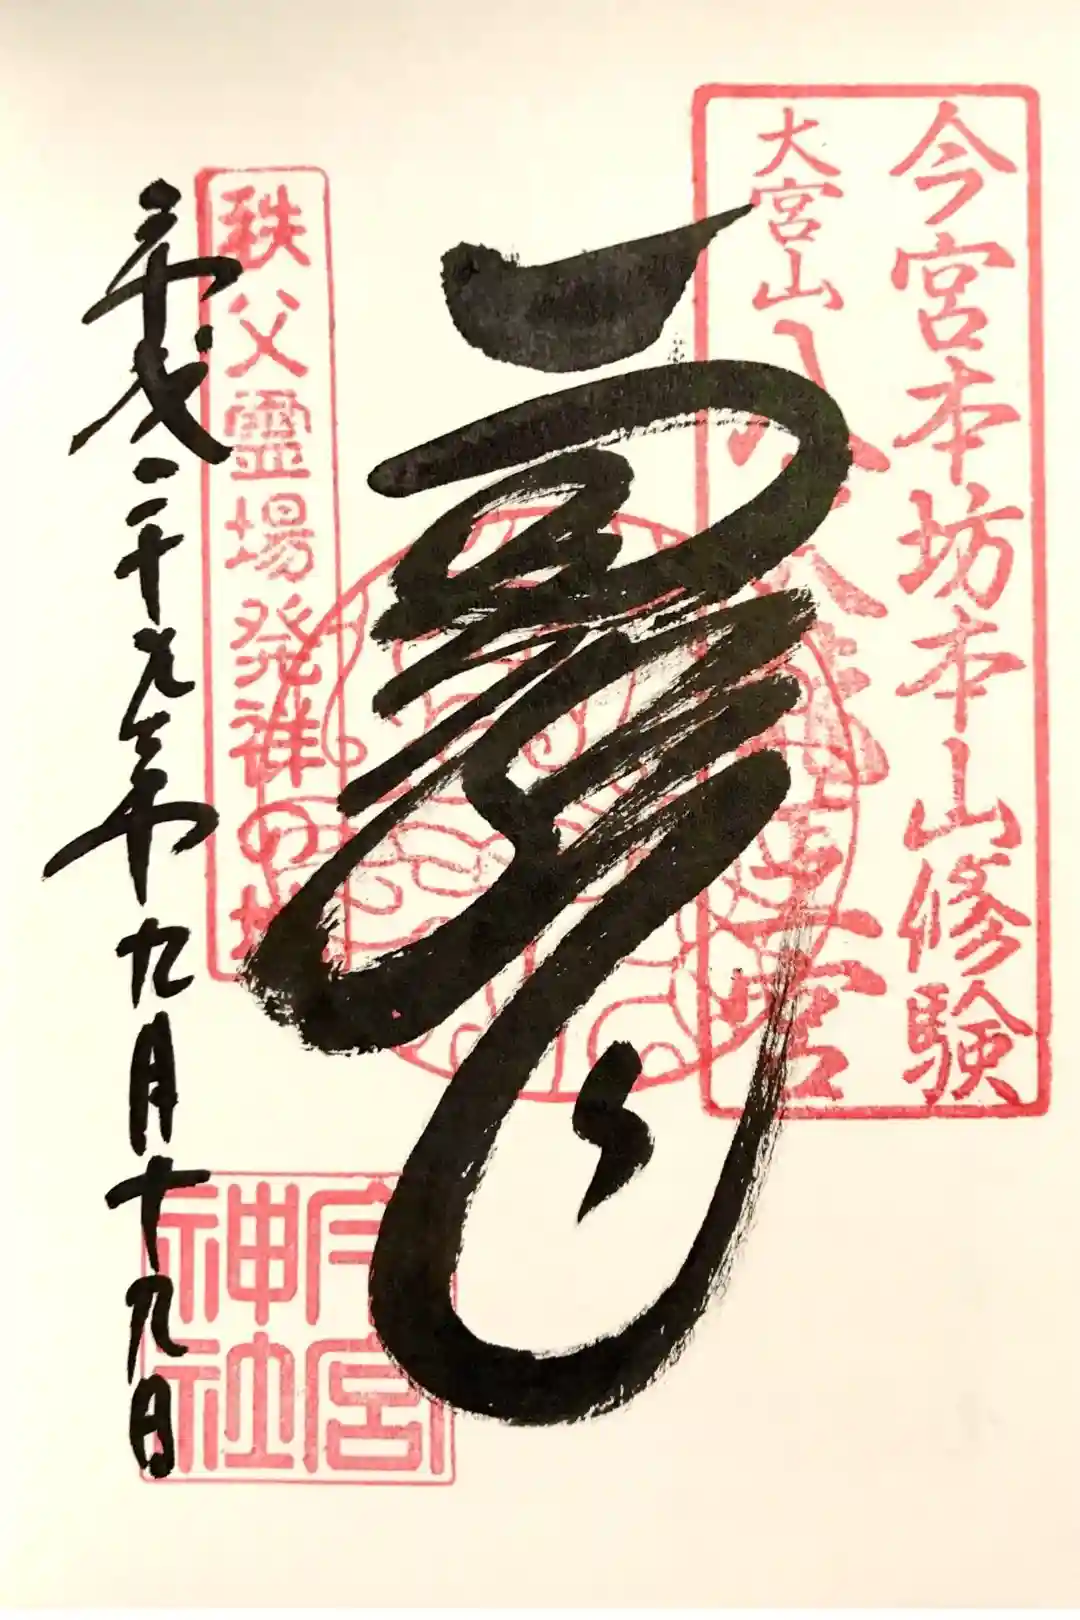 今宮本坊本山修験
大宮山
八大龍王宮
龍
秩父霊場発祥の地
平成二十九年九月十九日
今宮
神社